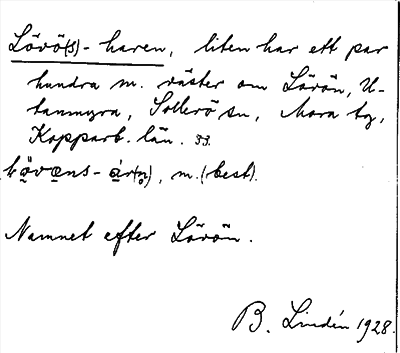 Lövö(s)-haren, liten har ett par
hundra m. väster om Lövön, U-
tanmyra, Sollerö sn, Mora tg,
Kopparb. län. 33.
lövens-år(n), m. (best).
Namnet efter Lövön.
B. Lindén 1928.